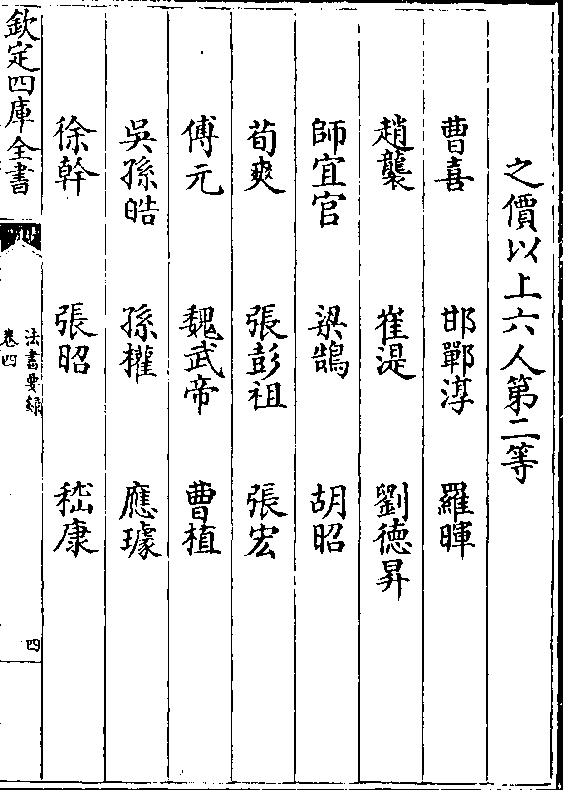 之價以上六人第二等
曹喜 邯鄲淳 羅暉
趙襲 崔湜 劉德昇
師宜官 梁鵠 胡昭
荀爽 張彭祖 張宏
傅元 魏武帝 曹植
吳孫皓 孫權 應璩
徐幹 張昭 嵇康
欽定四庫全書
法書要録
卷四
四